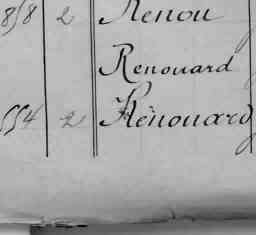 858 2 Renou
Renouard
554 2 Rénouard